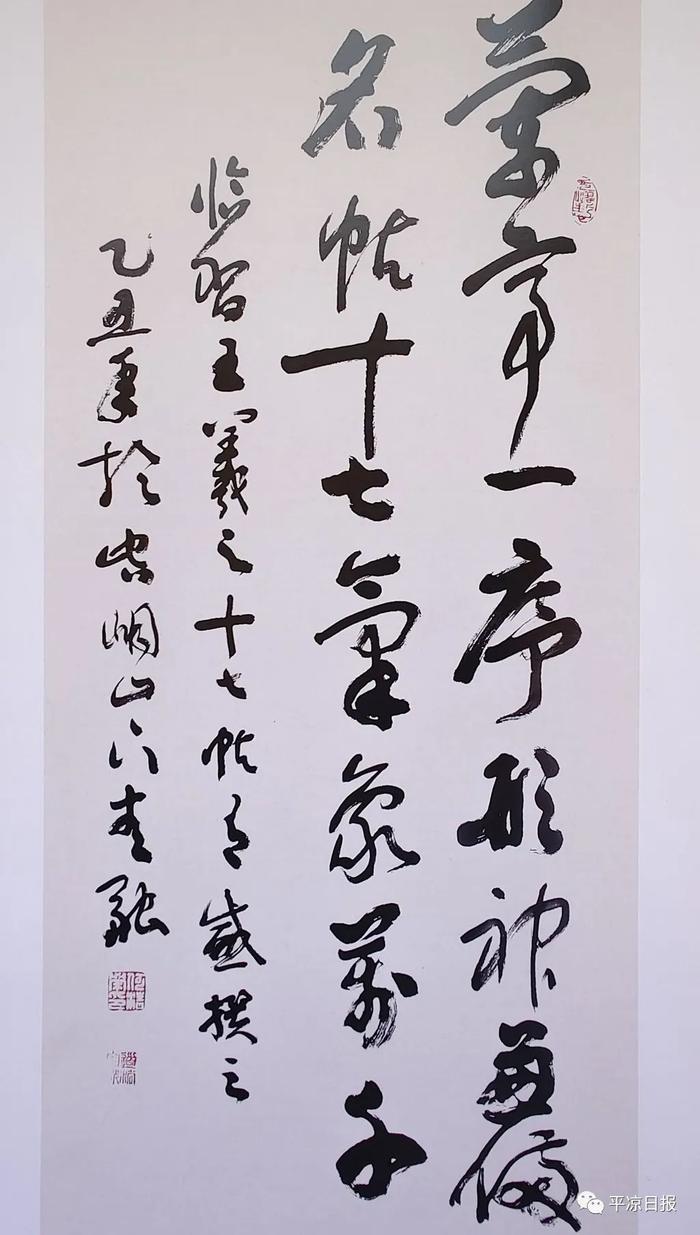 蘭亭一序形神兼備
名帖十七氣象萬千
臨習王羲之十七帖有感撰之
乙丑年於崆峒山下融
平凉日报